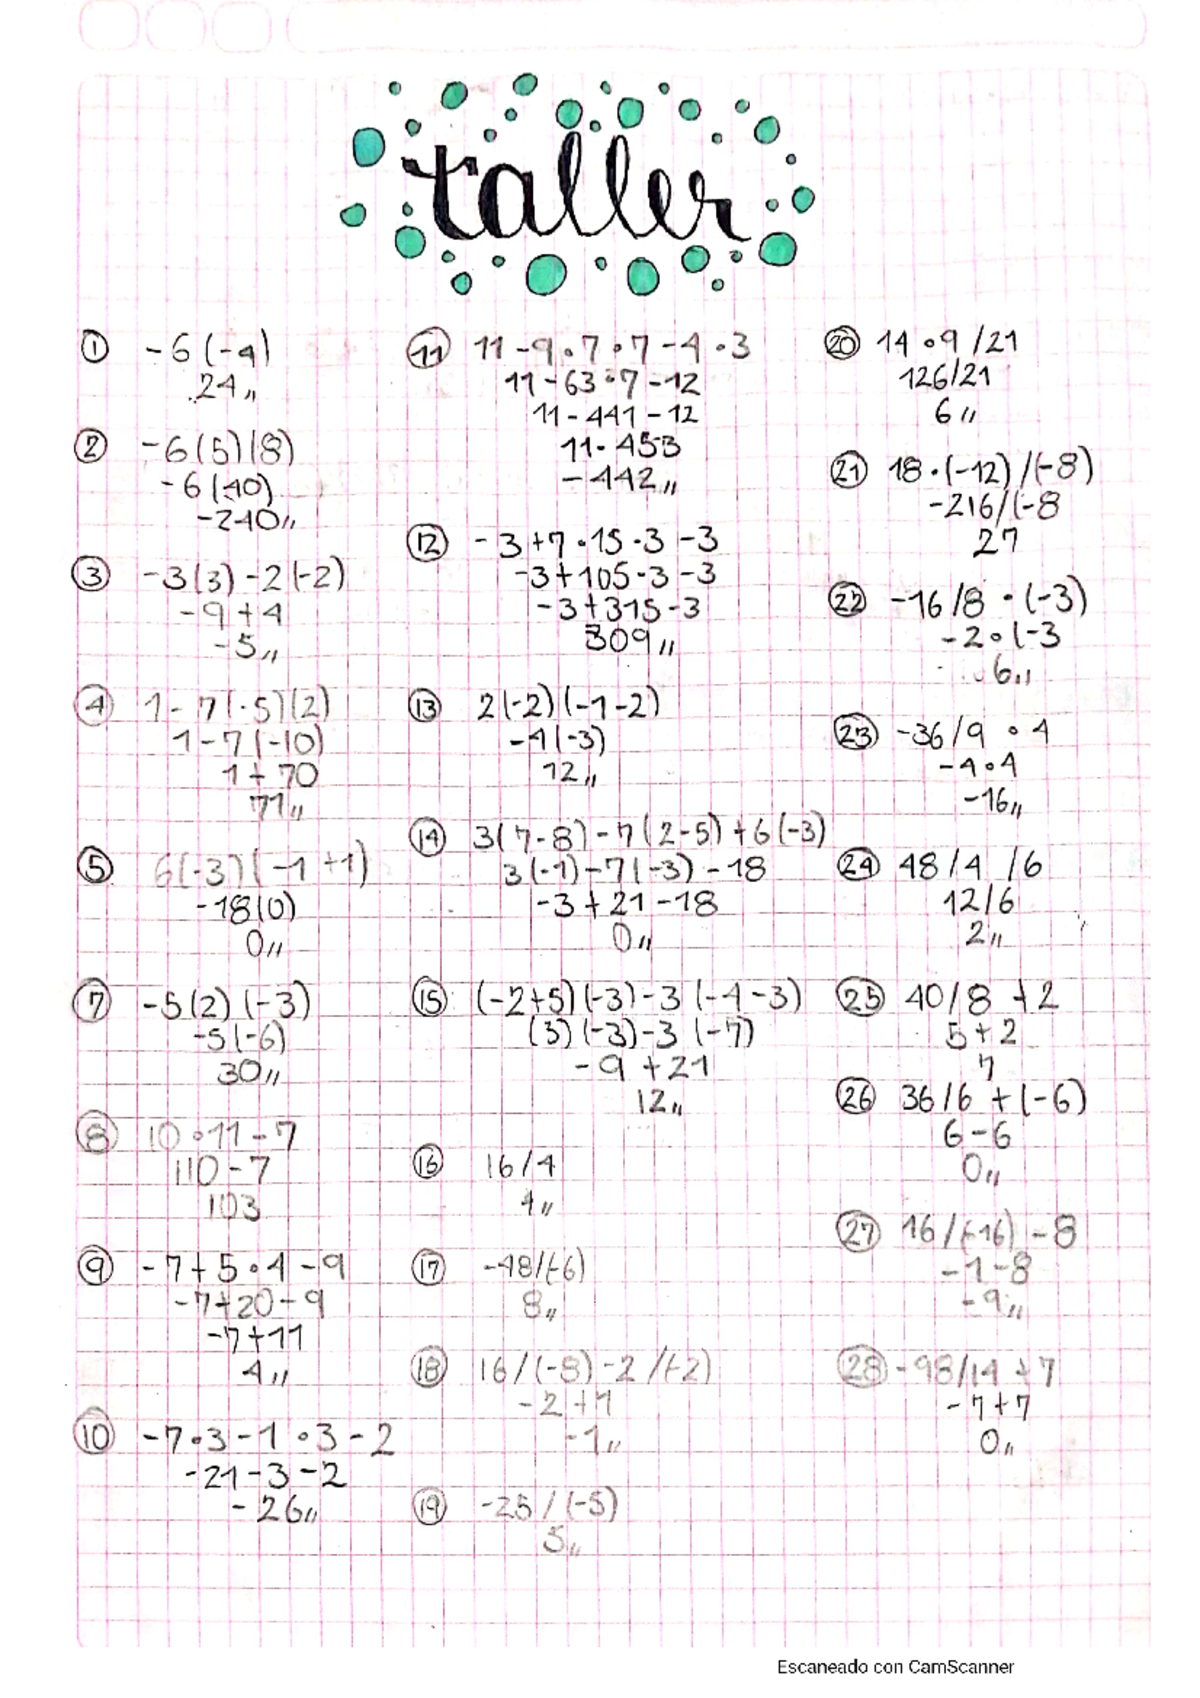 taller
① -6(-4)
24,,
② -6(5)(8)
-6(40)
-240,,
③ -3(3)-2(-2)
-9+4
-5,,
④ 1-7(-5)(2)
1-7(-10)
1+70
71,,
⑤ 6(-3)(-1+1)
-18(0)
0,,
⑦ -5(2)(-3)
-5(-6)
30,,
⑧ 10•11-7
110-7
103
⑨ -7+5•4-9
-7+20-9
-7+11
4,,
⑩ -7•3-1•3-2
-21-3-2
-26,,
⑪ 11-9•7•7-4•3
11-63•7-12
11-441-12
11-453
-442,,
⑫ -3+7•15•3-3
-3+105•3-3
-3+315-3
309,,
⑬ 2(-2)(-1-2)
-4(-3)
12,,
⑭ 3(7-8)-7(2-5)+6(-3)
3(-1)-7(-3)-18
-3+21-18
0,,
⑮ (-2+5)(-3)-3(-4-3)
(3)(-3)-3(-7)
-9+21
12,,
⑯ 16/4
4,,
⑰ -48/(-6)
8,,
⑱ 16/(-8)-2/(-2)
-2+1
-1,,
⑲ -25/(-5)
5,,
⑳ 14•9/21
126/21
6,,
㉑ 18•(-12)/(-8)
-216/(-8
27
㉒ -16/8•(-3)
-2•(-3
6,,
㉓ -36/9•4
-4•4
-16,,
㉔ 48/4/6
12/6
2,,
㉕ 40/8+2
5+2
7
㉖ 36/6+(-6)
6-6
0,,
㉗ 16/(-16)-8
-1-8
-9,,
㉘ -98/14+7
-7+7
0,,
Escaneado con CamScanner